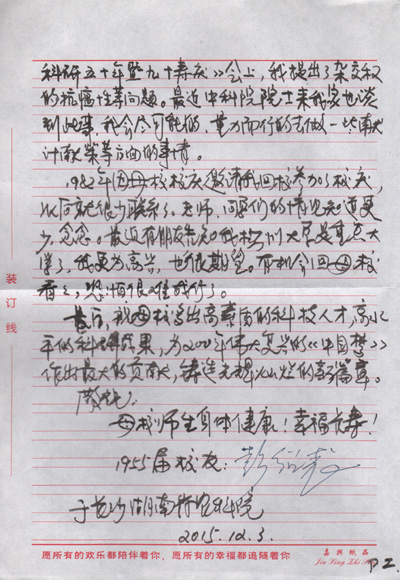 科研五十年暨九十寿庆》会上，我提出了杂交
的抗癌性等问题。最近中科院院士来我家也谈
到此事，我会尽可能的，量力而行的去做一些南
计 等方面的事情。
1982年因母校校庆邀请我回校参加了校庆，
以后就很少联系了。老师、同学们的情况知道更
少，念念。最近有朋友告知我校 大学是重点大
学了，我更为高兴，也很期望。有机会回母校
看看，恐怕很难成行了。
最后，祝母校写出高素质的科技人才，高水
平的科研成果，为200年伟大复兴的《中国梦》
作出最大的贡献，铸造无程灿烂的新篇章。
祝
母校师生身体健康！幸福长寿！
1955届校友：
于长沙湖南 科院
2015.12.3.
装订线
愿所有的欢乐都陪伴着你，愿所有的幸福都追随着你
嘉兴纸品
Jia Xing Zhi
P2.